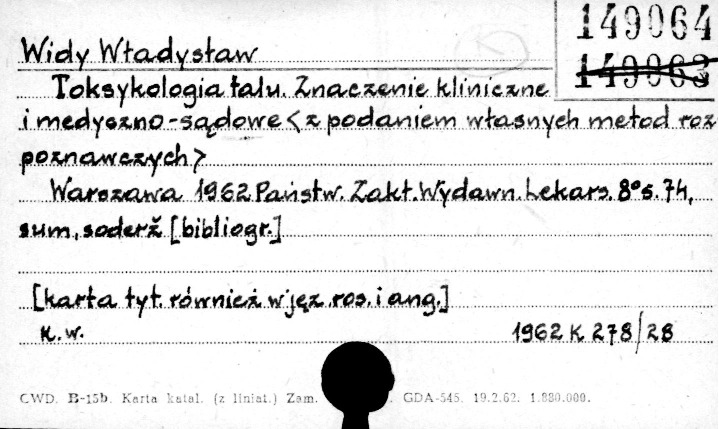 149064
149063
Widy Władysław
Toksykologia talu. Znaczenie kliniczne
i medyszno-sądowe <z podaniem własnych metod roz
poznawczych>
Warszawa 1962 Państw. Zakł. Wydawn. Lekars. 8° s. 74,
sum., soderž [bibliogr.]
[karta tyt. również w jęz. ros. i ang.]
K.w. 1962 K 278/28
CWD. B-15b. Karta katal. (z liniat.) Zam. GDA-545. 19.2.62. 1.880.000.